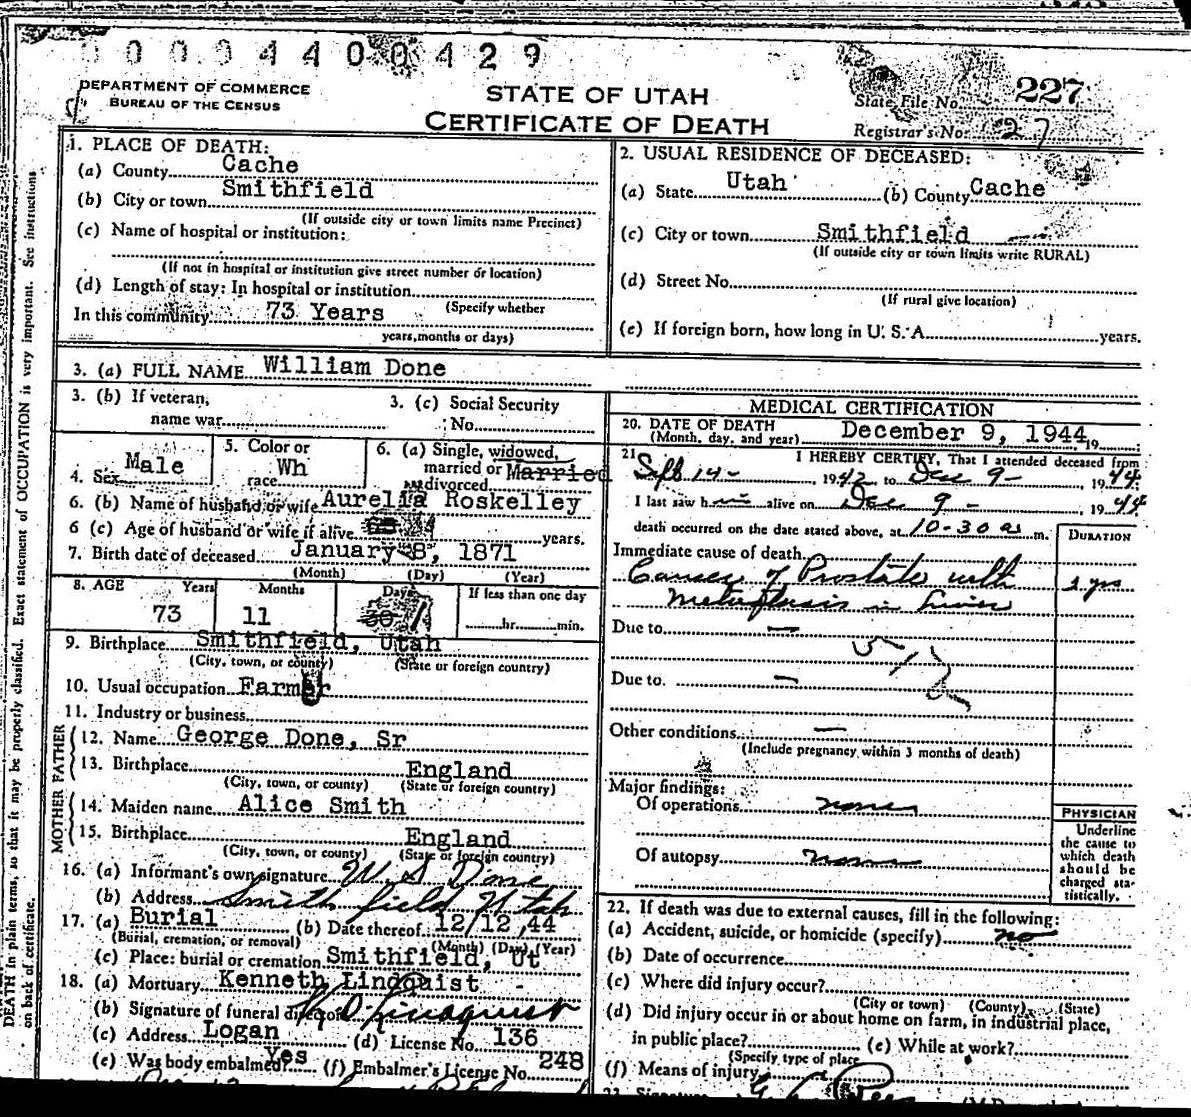 00004400429
DEPARTMENT OF COMMERCE
BUREAU OF THE CENSUS
STATE OF UTAH
CERTIFICATE OF DEATH
State File No. 227
Registrar's No. 27
1. PLACE OF DEATH:
(a) County Cache
(b) City or town Smithfield
(If outside city or town limits name Precinct)
(c) Name of hospital or institution:
(If not in hospital or institution give street number or location)
(d) Length of stay: In hospital or institution
(Specify whether
In this community 73 Years
years, months or days)
2. USUAL RESIDENCE OF DECEASED:
(a) State Utah (b) County Cache
(c) City or town Smithfield
(If outside city or town limits write RURAL)
(d) Street No.
(If rural give location)
(e) If foreign born, how long in U. S. A. years.
3. (a) FULL NAME William Done
3. (b) If veteran,
name war
3. (c) Social Security
No.
4. Sex Male
5. Color or
race Wh
6. (a) Single, widowed,
married or Married
divorced
6. (b) Name of husband or wife Aurelia Roskelley
6 (c) Age of husband or wife if alive years.
7. Birth date of deceased January 8, 1871
(Month) (Day) (Year)
8. AGE Years Months Days If less than one day
73 11 1 hr. min.
9. Birthplace Smithfield, Utah
(City, town, or county) (State or foreign country)
10. Usual occupation Farmer
11. Industry or business
FATHER
12. Name George Done, Sr
13. Birthplace England
(City, town, or county) (State or foreign country)
MOTHER
14. Maiden name Alice Smith
15. Birthplace England
(City, town, or county) (State or foreign country)
16. (a) Informant's own signature W. S Done
(b) Address Smithfield Utah
17. (a) Burial (b) Date thereof 12/12,44
(Burial, cremation, or removal) (Month) (Day) (Year)
(c) Place: burial or cremation Smithfield, Ut
18. (a) Mortuary Kenneth Lindquist
(b) Signature of funeral director K D Lindquist
(c) Address Logan (d) License No. 136
(e) Was body embalmed? Yes (f) Embalmer's License No. 248
MEDICAL CERTIFICATION
20. DATE OF DEATH
(Month, day, and year) December 9, 1944 19
21 I HEREBY CERTIFY, That I attended deceased from
Sept 14 - , 1942 to Dec 9 - , 1944
I last saw him alive on Dec 9 - , 1944
death occurred on the date stated above, at 10-30 a m.
DURATION
Immediate cause of death
Cancer of Prostate with 2 yrs
in Liver
Due to —
Due to. —
Other conditions —
(Include pregnancy within 3 months of death)
Major findings:
Of operations none
Of autopsy none
PHYSICIAN
Underline
the cause to
which death
should be
charged sta-
tistically.
22. If death was due to external causes, fill in the following:
(a) Accident, suicide, or homicide (specify) no
(b) Date of occurrence
(c) Where did injury occur?
(City or town) (County) (State)
(d) Did injury occur in or about home on farm, in industrial place,
in public place? (e) While at work?
(Specify type of place
(f) Means of injury
DEATH in plain terms, so that it may be properly classified. Exact statement of OCCUPATION is very important. See instructions
on back of certificate.